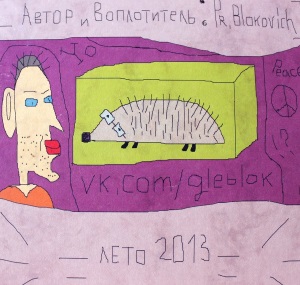 Автор и Воплотитель : Pr. Blokovich
Peace
vk.com/gleblok
лето 2013